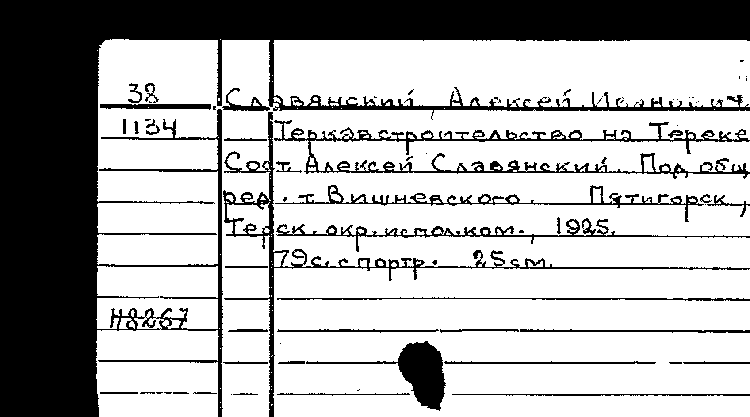 38
Славянский, Алексей Иванович.
1134
Теркавстроительство на Тереке
Сост. Алексей Славянский. Под общ
ред. т. Вишневского. Пятигорск,
Терск. окр. исполком., 1925.
79 с. с портр. 25 см.
Н8267